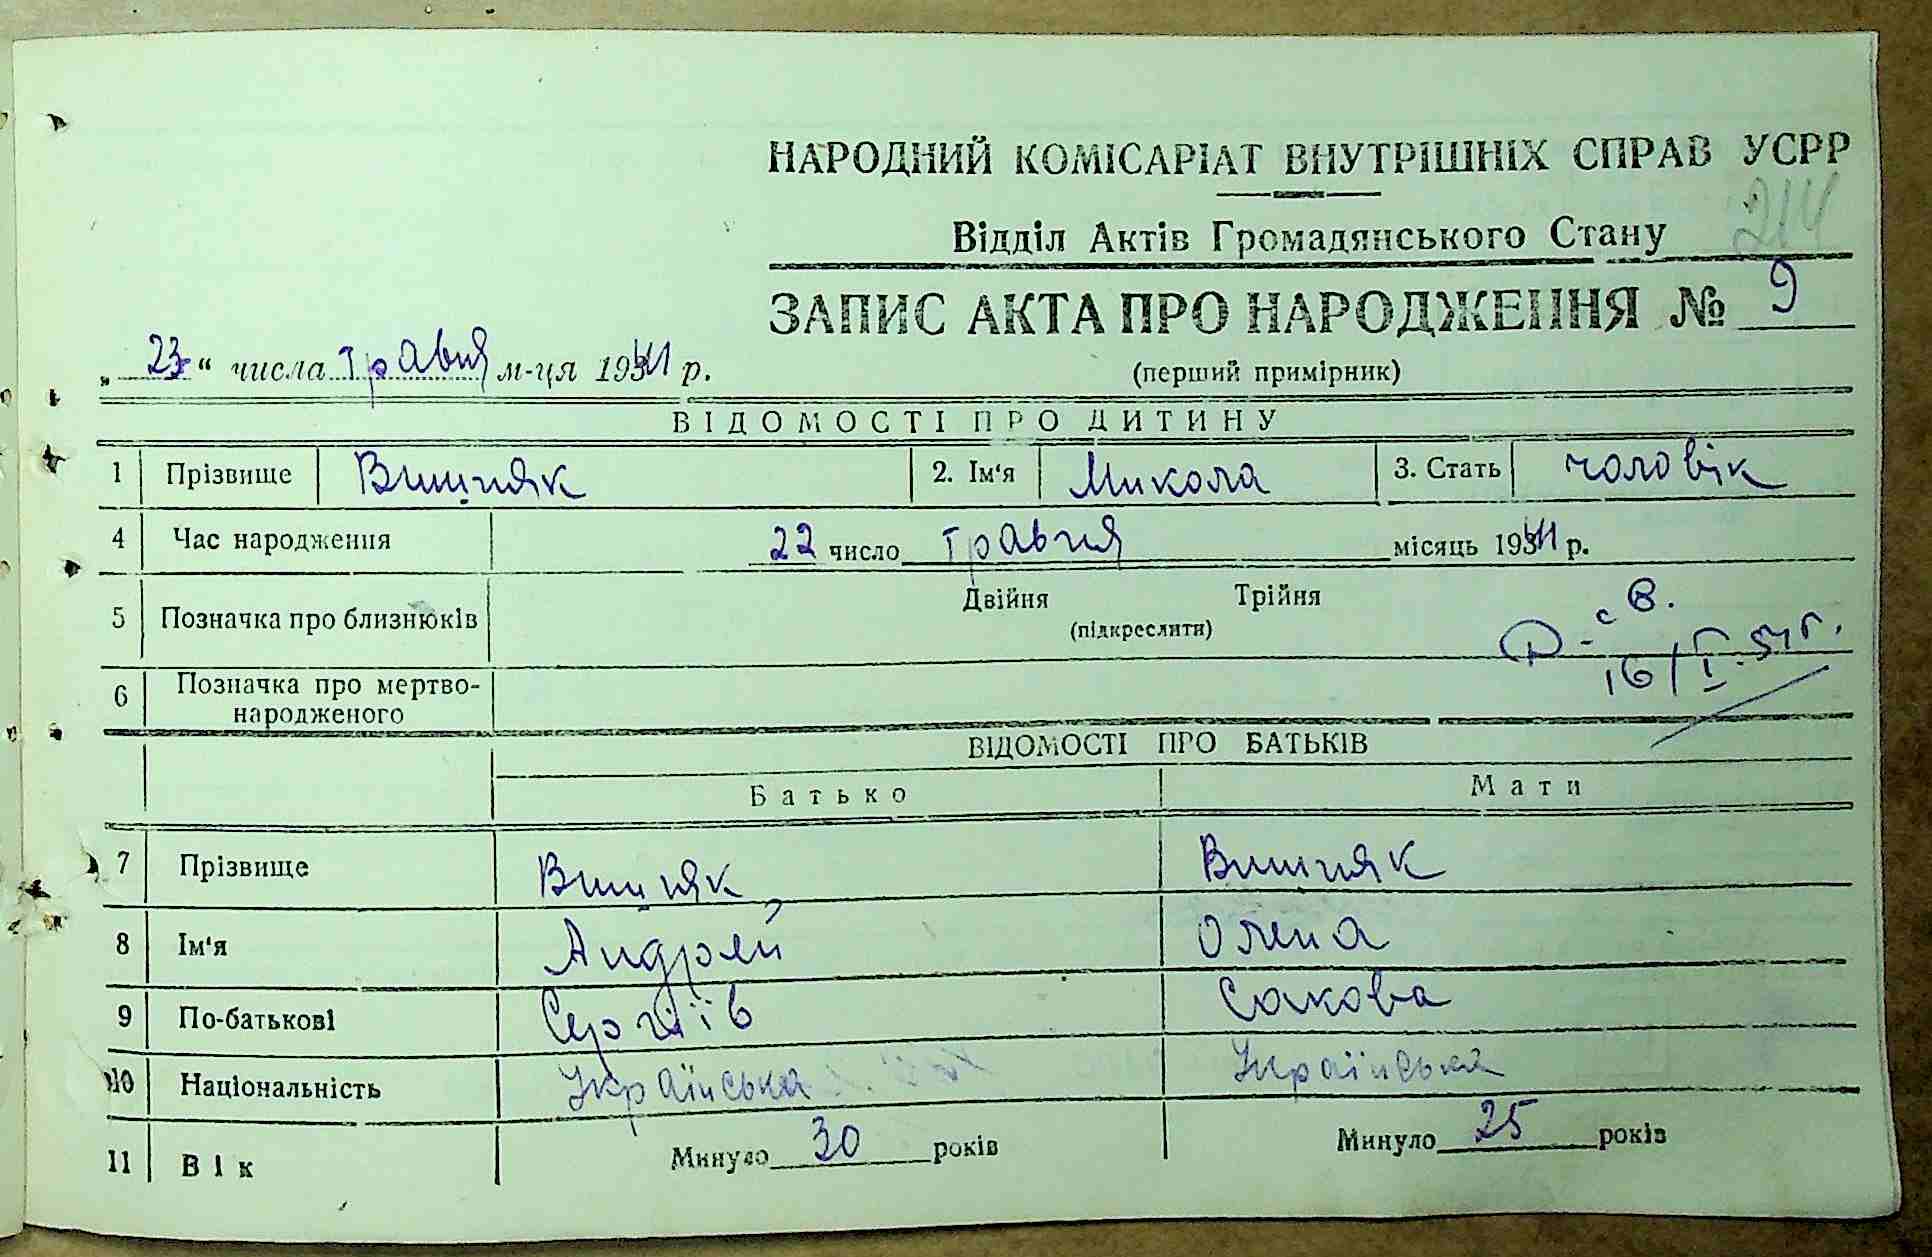 НАРОДНИЙ КОМІСАРІАТ ВНУТРІШНІХ СПРАВ УСРР
214
Відділ Актів Громадянського Стану
ЗАПИС АКТА ПРО НАРОДЖЕННЯ № 9
„ 23 “ числа травня м-ця 1941 р.
(перший примірник)
ВІДОМОСТІ ПРО ДИТИНУ
1 Прізвище Вишняк 2. Ім'я Микола 3. Стать чоловік
4 Час народження 22 число травня місяць 1941 р.
5 Позначка про близнюків Двійня Трійня
(підкреслити)
16/I 54 г.
6 Позначка про мертво-
народженого
ВІДОМОСТІ ПРО БАТЬКІВ
Батько Мати
7 Прізвище Вишняк Вишняк
8 Ім'я Андрей Олена
9 По-батькові Сергіїв
10 Національність Українська Українська
11 Вік Минуло 30 років Минуло 25 років